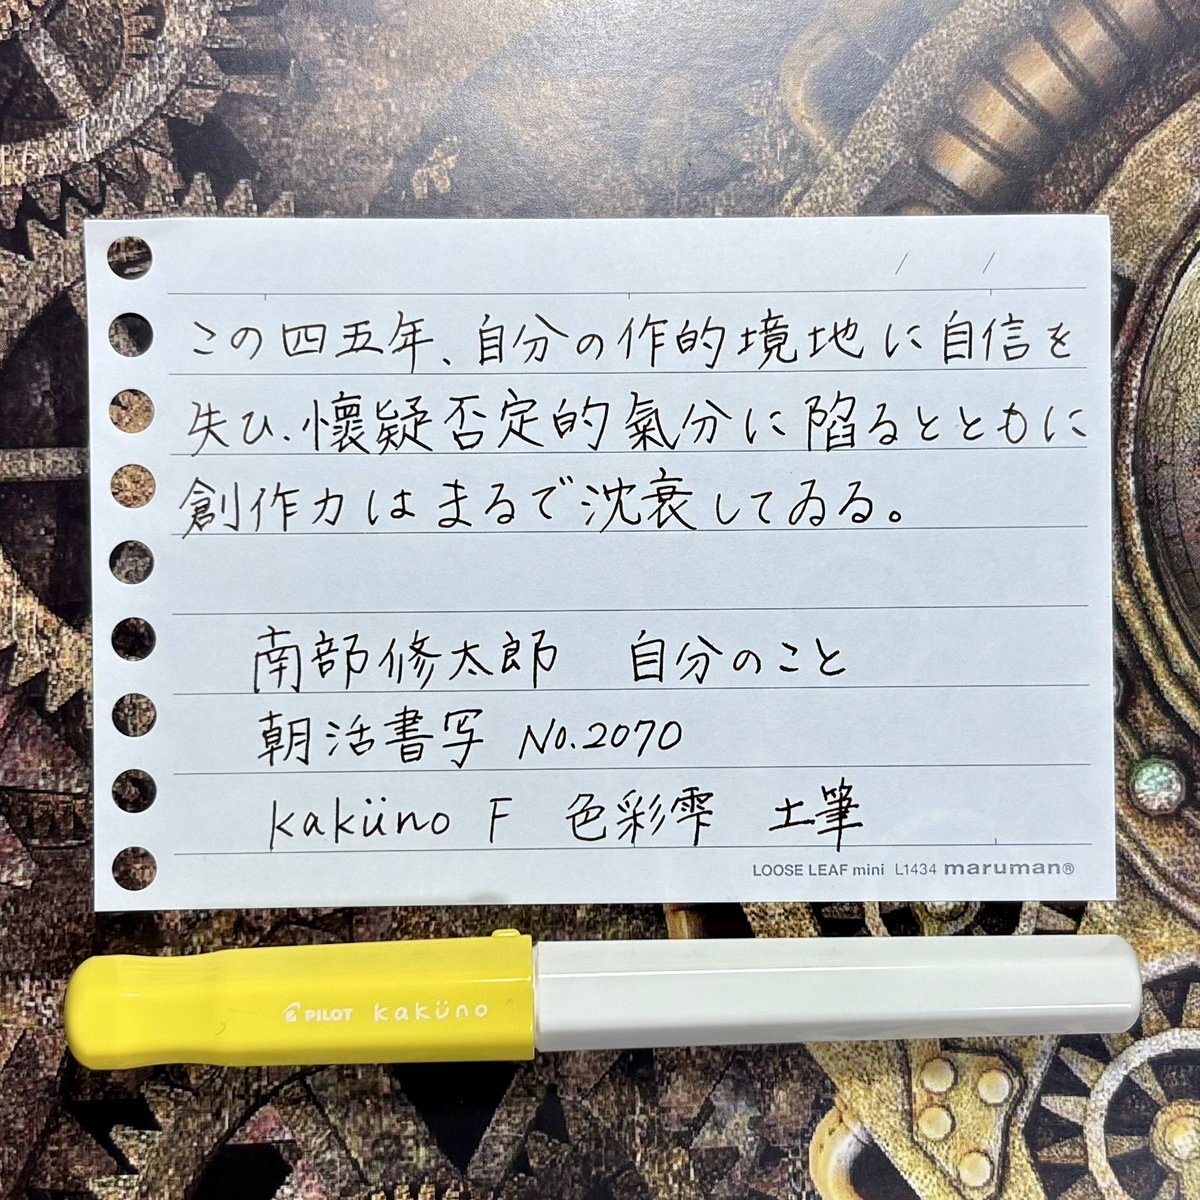 / /
この四五年、自分の作的境地に自信を
失ひ、懷疑否定的氣分に陷るとともに
創作力はまるで沈衰してゐる。
南部修太郎 自分のこと
朝活書写 No.2070
kaküno F 色彩雫 土筆
LOOSE LEAF mini L1434 maruman®
PILOT kaküno